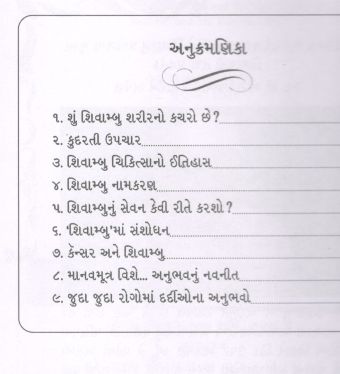 અનુક્રમણિકા
૧. શું શિવામ્બુ શરીરનો કચરો છે?
૨. કુદરતી ઉપચાર
૩. શિવામ્બુ ચિકિત્સાનો ઈતિહાસ
૪. શિવામ્બુ નામકરણ
૫. શિવામ્બુનું સેવન કેવી રીતે કરશો?
૬. 'શિવામ્બુ'માં સંશોધન
૭. કૅન્સર અને શિવામ્બુ
૮. માનવમૂત્ર વિશે... અનુભવનું નવનીત
૯. જુદા જુદા રોગોમાં દર્દીઓના અનુભવો